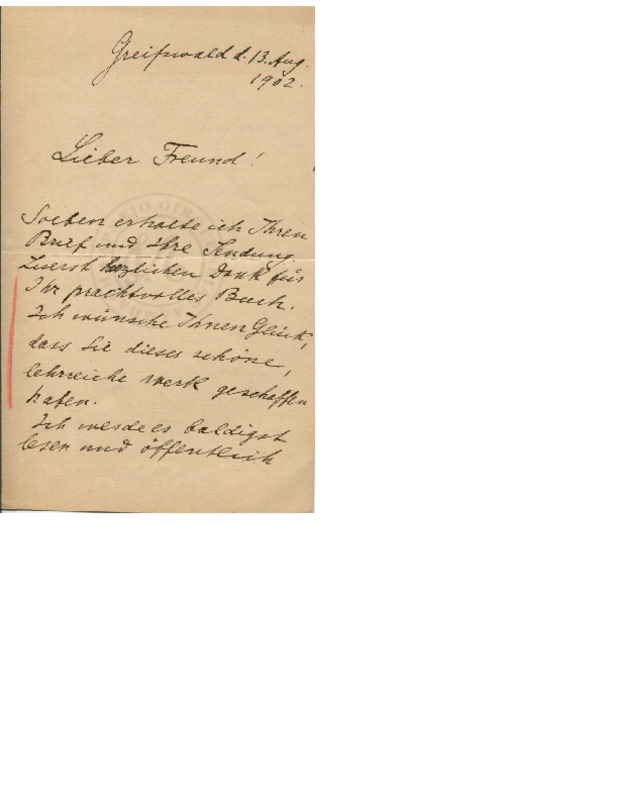 Greifswald d. 13. Aug.
1902.
Lieber Freund!
Soeben erhalte ich Ihren
Brief und Ihre Sendung.
Zuerst herzlichen Dank für
Ihr prachtvolles Buch.
Ich wünsche Ihnen Glück,
dass Sie dieses schöne,
lehrreiche Werk geschaffen
haben.
Ich werde es baldigst
lesen und öffentlich